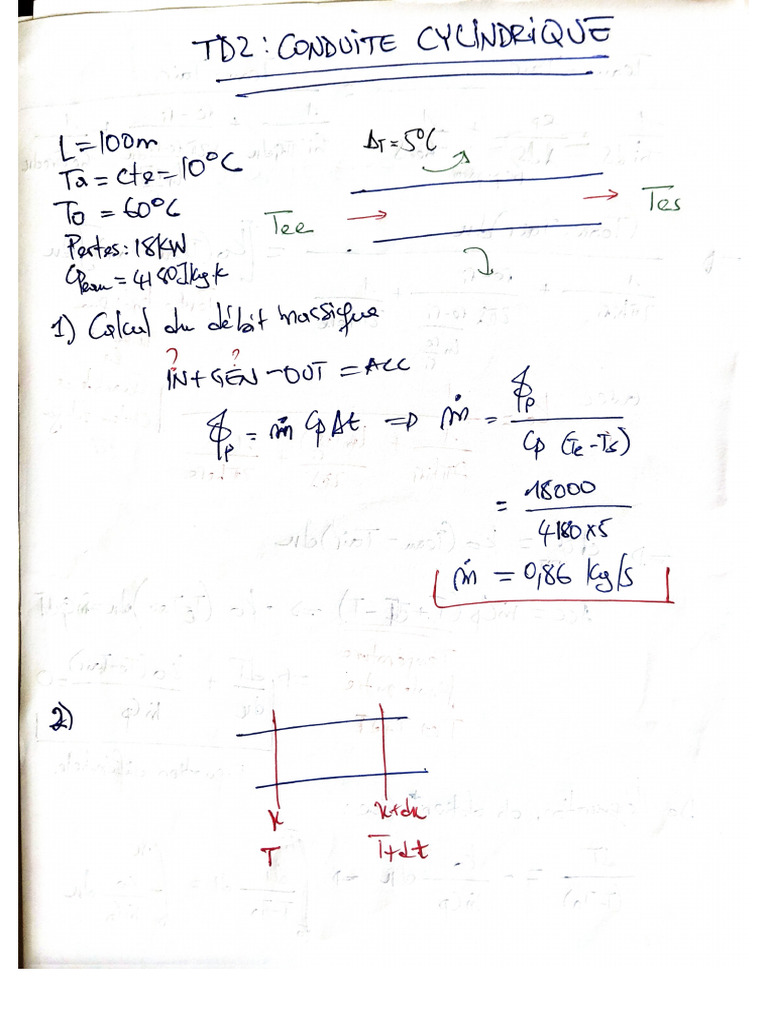 TD2 : CONDUITE CYLINDRIQUE
L = 100m
Ta = cte = 10°C
T0 = 60°C
Pertes : 18KW
Cpeau = 4180J/kg.k
ΔT = 5°C
Tee
Tes
1) Calcul du débit massique
? ?
IN + GEN - OUT = ACC
ϕp = ṁ Cp Δt => ṁ = ϕp / Cp (Te - Ts)
= 18000 / 4180 x 5
ṁ = 0,86 Kg/s
2)
x x+dx
T T+dt